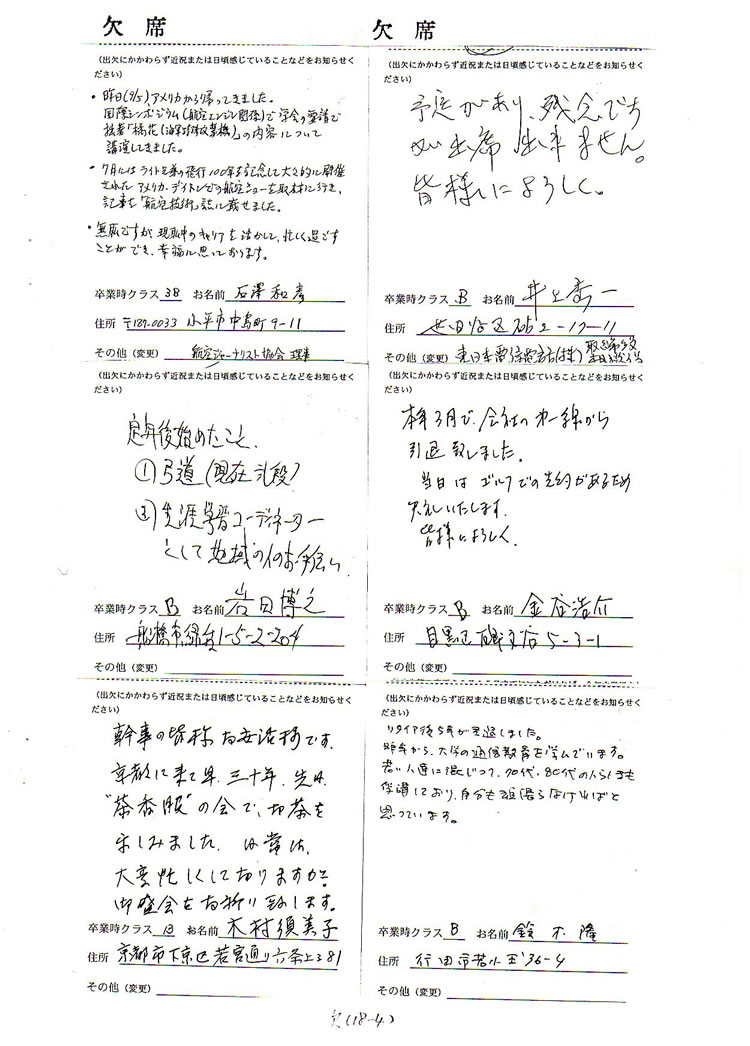 欠 席
欠 席
(出欠にかかわらず近況または日頃感じていることなどをお知らせください)
・昨日(9/5)、アメリカから帰ってきました。
国際シンポジウム(航空エンジン関係)で学会の要請で
拙著「橘花
の内容について
講演してきました。
・7月にはライト兄弟の飛行100年を記念して大々的に開催
されたアメリカ、デイトンでの航空ショーを取材に行き、
記事を「航空技術」誌に載せました。
・無職ですが、現役中のキャリアを活かして、忙しく過ごす
ことができ、幸福に思っております。
卒業時クラス 3B お名前 石澤和彦
住所 〒187-0033 小平市中島町9-11
その他(変更) 航空ジャーナリスト協会 理事
(出欠にかかわらず近況または日頃感じていることなどをお知らせください)
予定があり、残念です
が出席出来ません。
皆様によろしく。
卒業時クラス B お名前 井上
住所 2-17-11
その他(変更) 東日本
(出欠にかかわらず近況または日頃感じていることなどをお知らせください)
定年後始めたこと、
①弓道(現在弐段)
②生涯学習コーディネーター
として地域のお手伝い
卒業時クラス B お名前 岩田博之
住所 船橋市緑台1-5-2-204
その他(変更)
(出欠にかかわらず近況または日頃感じていることなどをお知らせください)
本年3月で、会社の第一線から
引退致しました。
当日はゴルフでの先約があるため
失礼いたします。
皆様によろしく。
卒業時クラス B お名前 金谷浩介
住所 目黒区 5-3-1
その他(変更)
(出欠にかかわらず近況または日頃感じていることなどをお知らせください)
幹事の皆様お世話様です。
京都に来て早、三十年、先は
"茶香服"の会で、お茶を
楽しみました。日常は、
大変忙しくしておりますが、
御盛会をお祈り致します。
卒業時クラス B お名前 木村須美子
住所 京都市下京区若宮通り六条上ル81
その他(変更)
(出欠にかかわらず近況または日頃感じていることなどをお知らせください)
リタイア後5年が経過しました。
昨年から、大学の通信教育を学んでいます。
若い人達に混じって、70代・80代の人たちも
受講しており、自分も頑張らなければと
思っています。
卒業時クラス B お名前 鈴木 隆
住所 行田市若小玉36-4
その他(変更)
欠(18-4)